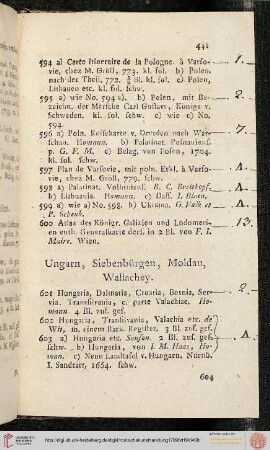 441
594 a) Carte itineraire de la Pologne. à Varso-
vie, chez M. Gröll, 773. kl. fol. b) Polen,
nach der Theil. 772. ¾ Bl. kl. fol. c) Polen,
Lithauen etc. kl. fol. schw.
1.
595 a) wie No. 594 a). b) Polen, mit Be-
zeichn. der Märsche Carl Gustavs, Königs v.
Schweden. kl. fol. schw. c) wie c) No.
594.
2.
596 a) Poln. Reisekarte v. Dresden nach War-
schau. Homann. b) Palatinat. Posnaniens.
p. G. F. M. c) Belag. von Posen, 1704.
kl. fol. schw.
7.
597 Plan de Varsovie, mit poln. Erkl. à Varso-
vie, chez M. Gröll, 779. schw.
1.
598 a) Palatinat. Volhiniens. B. C. Breitkopf.
b) Lithuania. Homann. c) Dass. I. Blaeu.
1.
599 a) wie a) No. 598. b) Ukrania. G. Valk et
P. Schenk.
1.
600 Atlas des Königr. Galizien und Lodomeri-
en enth. Generalkarte ders. in 2 Bl. von F. I.
Maire. Wien.
13.
Ungarn, Siebenbürgen, Moldau,
Wallachey.
601 Hungaria, Dalmatia, Croatia, Bosnia, Ser-
via, Transilvania, c. parte Valachiae. Ho-
mann. 4 Bl. zus. gef.
2.
602 Hungaria, Transilvania, Valachia etc. de
Wit, m. einem stark. Register. 3 Bl. zus. gef.
603 a) Hungaria etc. Sanson. 2 Bl. zus. gef.
schw. b) Hungaria, von I. M. Haas, Ho-
man. c) Neue Landtafel v. Hungarn. Nürnb.
I. Sandrart, 1664. schw.
1.
604